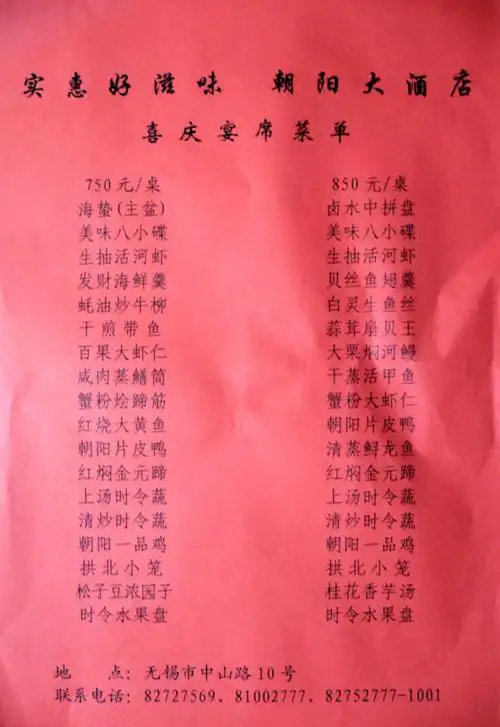 实惠好滋味 朝阳大酒店
喜庆宴席菜单
750元/桌
海蛰(主盆)
美味八小碟
生抽活河虾
发财海鲜羹
蚝油炒牛柳
干煎带鱼
百果大虾仁
咸肉蒸鳝筒
蟹粉烩蹄筋
红烧大黄鱼
朝阳片皮鸭
红焖金元蹄
上汤时令蔬
清炒时令蔬
朝阳一品鸡
拱北小笼
松子豆浓园子
时令水果盘
850元/桌
卤水中拼盘
美味八小碟
生抽活河虾
贝丝鱼翅羹
白灵生鱼丝
蒜茸扇贝王
大栗焖河鳗
干蒸活甲鱼
蟹粉大虾仁
朝阳片皮鸭
清蒸鲟龙鱼
红焖金元蹄
上汤时令蔬
清炒时令蔬
朝阳一品鸡
拱北小笼
桂花香芋汤
时令水果盘
地 点：无锡市中山路10号
联系电话：82727569、81002777、82752777-1001